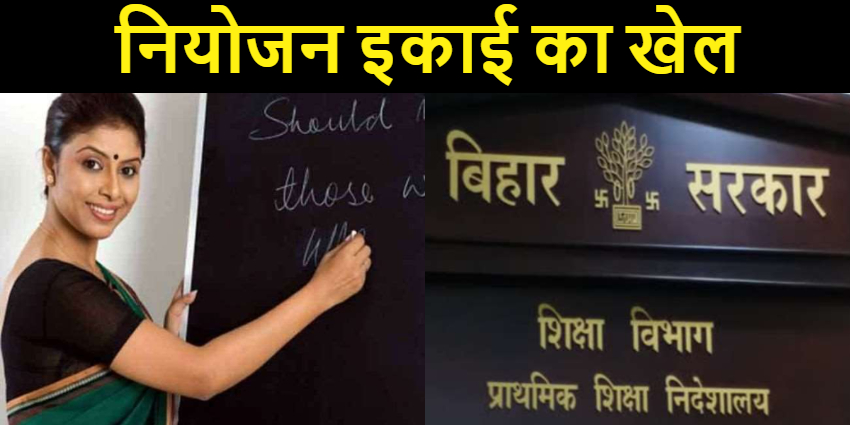 नियोजन इकाई का खेल
Should
those
बिहार सरकार
शिक्षा विभाग
प्राथमिक शिक्षा निदेशालय